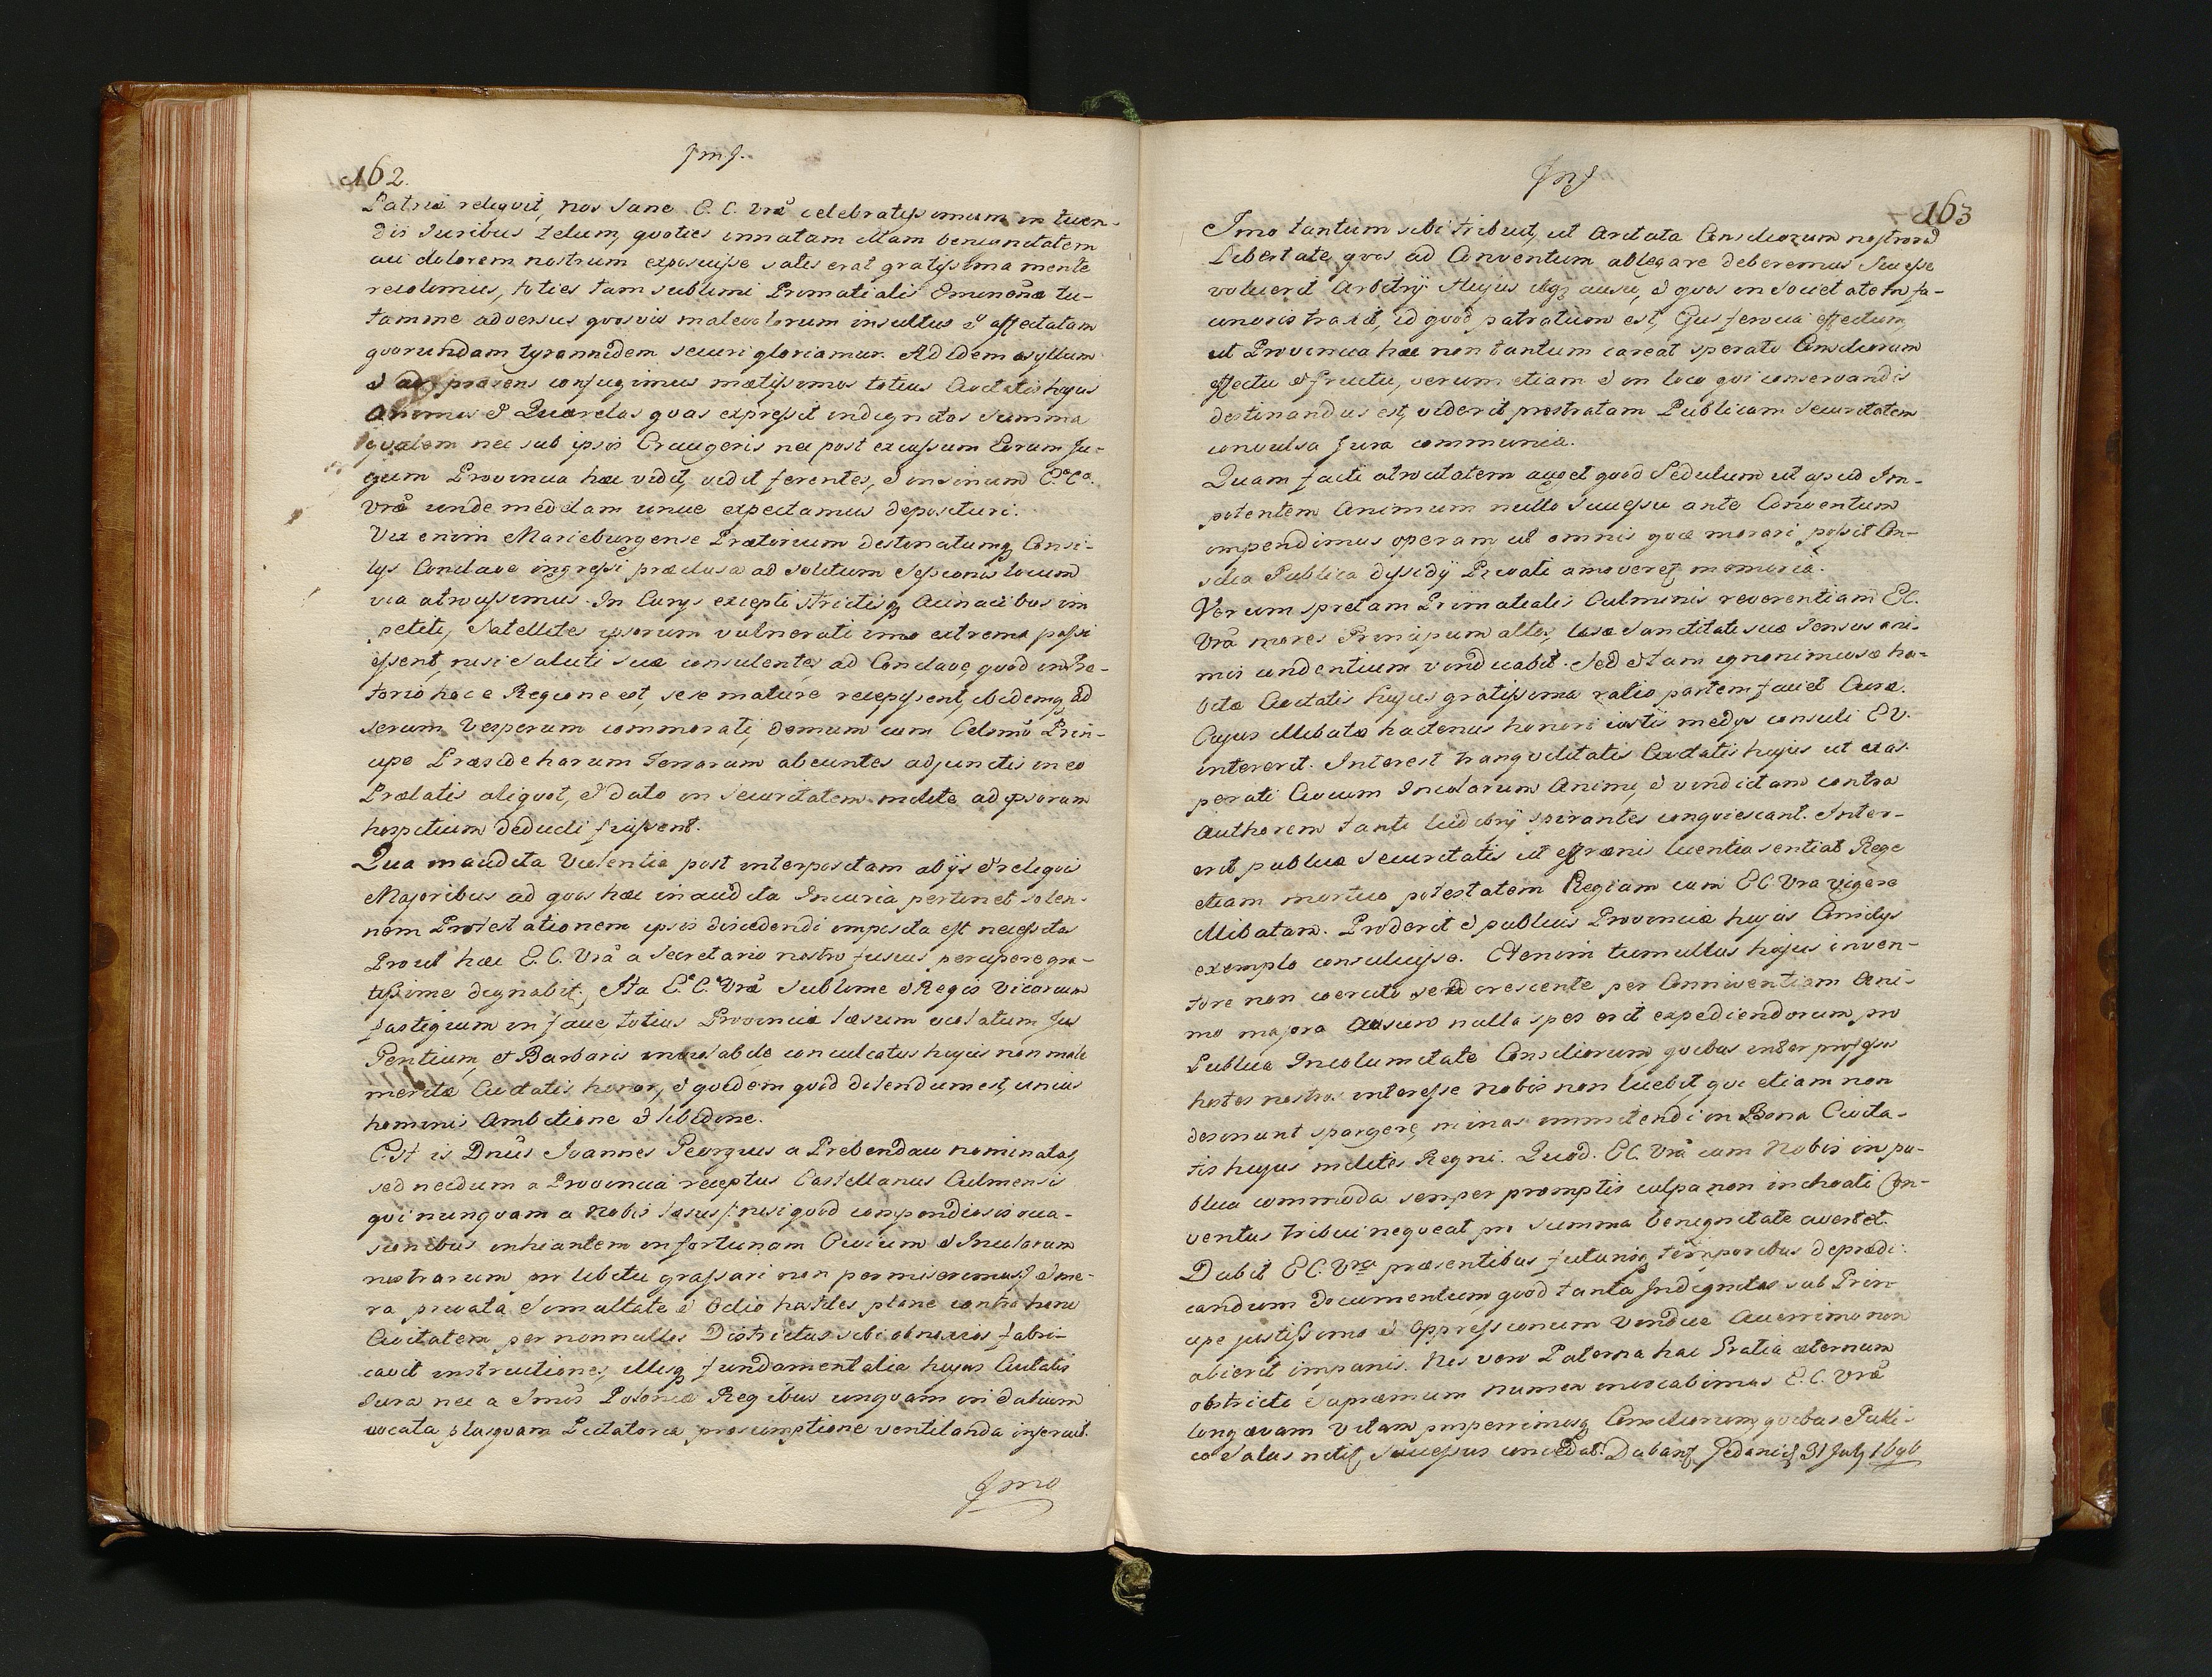 162.
Patriæ reliquit, nos sane E. C. Vrã celebratissimum in tuen-
dis Juribus zelum, quoties innatam illam benignitatem
aui dolorem nostrum exposuisse satis erat gratissima mente
recolimus, toties tam sublimi Primatialis Eminenãe tu-
tamine adversus quosvis malevolorum insultus & affectatam
quorundam tyrannidem securi gloriamur. Ad idem asyllum
& ad præsens confugimus mæstissimos totius Civitatis hujus
Animos & Querelas quas expressit indignitas summa
qualem nec sub ipsis Crucigeris nec post excussum Eorum Ju-
gum Provincia hæc vidit, vidit ferentes, & in sinum E. C.
Vrã unde medelam unice expectamus deposituri.
Vix enim Marieburgense Prætorium destinatumq Consi-
lys Conclave ingressi præclusa ad solitum Sessionis locum
via atrocissimus. In Curys excepti strictisq Acinacibus im
petiti, Satellites ipsorum vulnerati imo extrema passi
essent, nisi Saluti suæ consulentes ad Conclave, quod in Præ-
torio hac e Regione est, sese mature recepissent, ibidemq ad
serum Vesperum commorati, domum cum Celsmo Prin-
cipe Præside harum Terrarum abeuntes adjunctis in eo
Prælatis aliquot, & dato in Securitatem milite ad ipsorum
hospitium deducti fuissent.
Qua inaudita Violentia post interpositam ab ijs & reliquis
Majoribus ad quos hæc inaudita Incuria pertinet solen-
nem Protestationem ipsis discedendi imposita est necessitas
Prout hæc E. C. Vrã a Secretario nostro fusius percipere gra-
tissime dignabit; Ita E. C. Vrã Sublime & Regis Vicarium
fastigium in facie totius Provinciæ læsum violatum Jus
Gentium, et Barbaris inviolabile, conculcatus hujus non male
meritæ Civitatis honor, & quidem quod dolendum est, unius
hominis Ambitione & libidine.
Est is Dnus Joannes Georgius a Prebendau nominatus,
sed necdum a Provincia receptus Castellanus Culmensis
qui nunquam a Nobis læsus /: nisi quod compendiosis occa-
sionibus inhiantem in fortunam Civium & Incolarum
nostrorum pro libitu grassari non permiserimus :/ & me-
ra privata Simultate & Odio hostiles plane contra hanc
Civitatem per nonnullos Districtus sibi obnoxios fabri-
cavit instructiones, illisq fundamentalia hujus Civitatis
Jura nec a Smis Poloniæ Regibus unquam in dubium
vocata plusquam Dictatoria præsumptione ventilanda inseruit.
Imo
163
Imo tantum sibi tribuit, ut Arctata Consiliorum nostrorũ
Libertate, quos ad Conventum ablegare deberemus Suæ esse
voluerit Arbitrij. Hujus itaq ausu, & quos in Societatem fa-
cinoris traxit, id quod patratum est, Ejus ferocia effectum,
ut Provincia hæc non tantum careat sperato Consiliorum
effectu & fructu, verum etiam & in loco qui conservandis
destinandus est, viderit prostratam Publicam Securitatem
convulsa Jura communia.
Quam facti atrocitatem auget quod Sedulum ut apud Im-
potentem Animum nullo Successu ante Conventum
impendimus operam, ut omnis quæ morari possit Con-
silia Publica dissidij Privati amoveret memoria.
Verum spretam Primatialis Culminis reverentiam E. C.
Vrã mores Principum altos, læsæ Sanctitati suæ Sensus ani-
mis condentium vindicabit. Sed & tam ignominiosæ ha-
bitæ Civitatis hujus gratissima ratio partem faciet Curæ.
Cujus illibata hactenus honori justis medys consuli E. V.
intererit. Interest tranquilitatis Civitatis hujus ut exas-
perati Civium Incolarum Animi, & vindictam contra
Authorem tanti ludibrij spirantes conquiescant. Inter-
erit publicæ Securitatis ut effrænis licentia sentiat Rege
etiam mortuo potestatem Regiam cum E C Vra vigere
illibatam. Proderit & publicis Provinciæ hujus Consilys
exemplo consuluisse. Etenim tumultus hujus inven-
tore non coercito sed crescente per Conniventiam Ani-
mo majora Ausuro nulla spes erit expediendorum pro
Publica Incolumitate Consiliorum, quibus inter
hostes nostros interesse nobis non licebit, qui etiam non
desinunt spargere, minas immittendi in Bona Civita-
tis hujus milites Regni. Quod. E C. Vrã cum Nobis in pu-
blica commoda semper promptis culpa non inchoati Con-
ventus tribui nequeat pro summa benignitate avertet.
Dabit E C. Vrã præsentibus futurisq temporibus deprædi-
candum documentum, quod tanta Indignitas sub Prin-
cipe justissimo & Oppressionum Vindice Acerrimo non
abierit impunis. Nos vero Paterna hac Gratia æternum
obstricti Supremum Numen invocabimus E. C. Vrã
longævam Vitam prosperrimosq Consiliorum, quibus Publi-
ca Salus nitit, Successus concedat. Dabant Gedani 31 July 1696